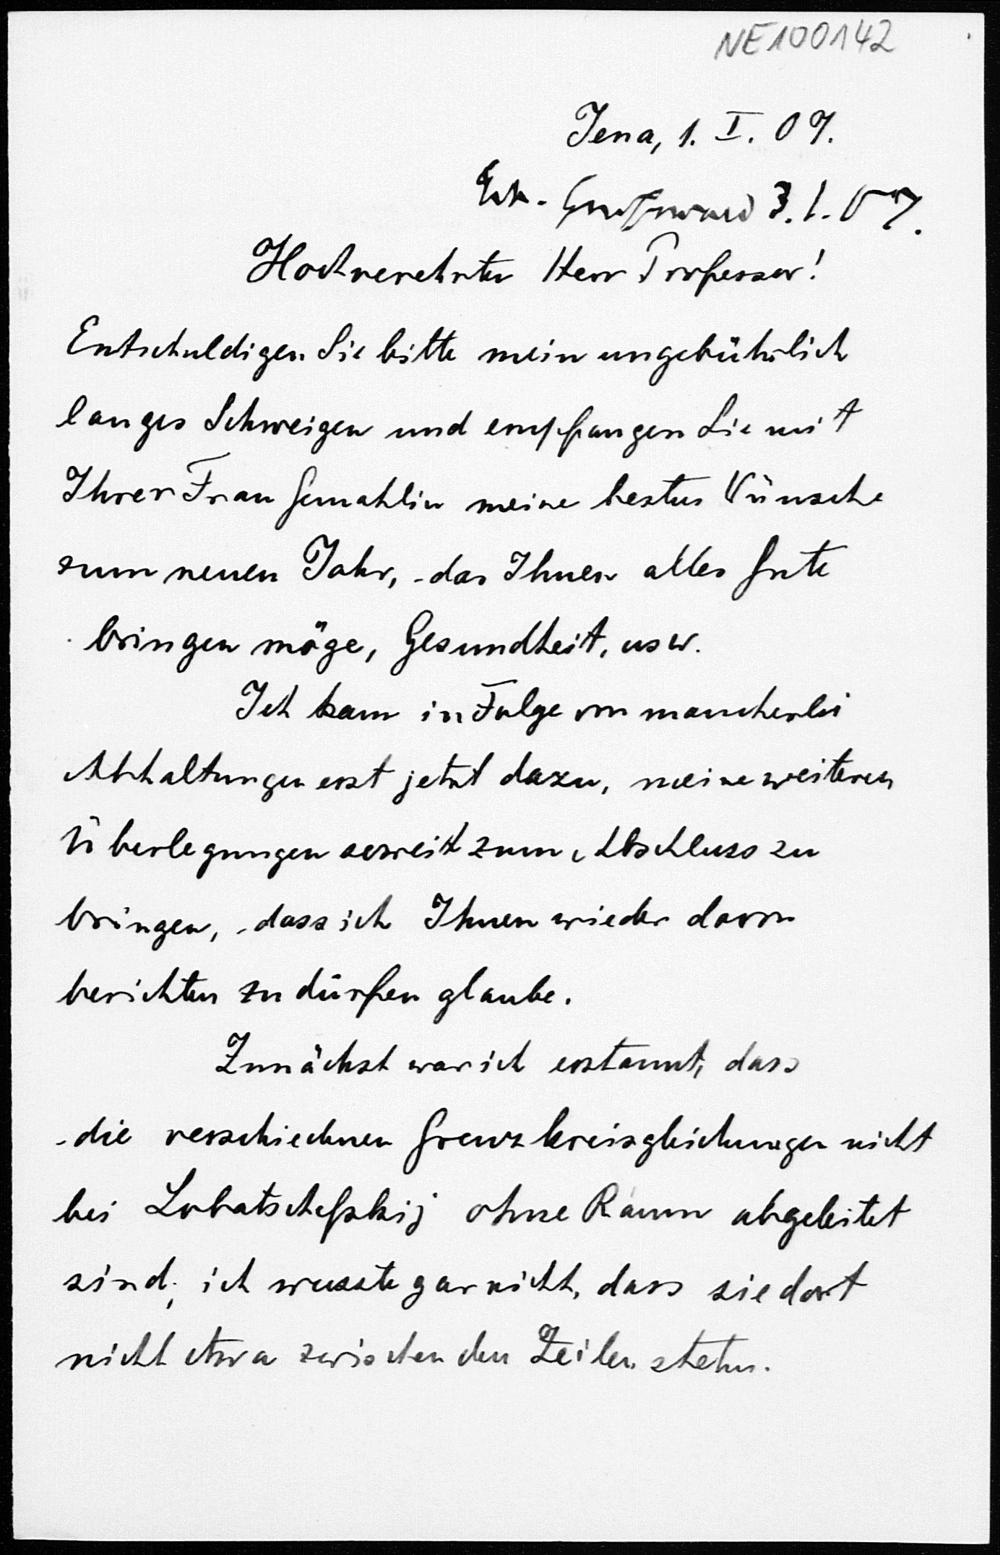 NE100142
Jena, 1. I. 07.
Erh. Greifswald 3.1.07.
Hochverehrter Herr Professor!
Entschuldigen Sie bitte mein ungebührlich
langes Schweigen und empfangen Sie mit
Ihrer Frau Gemahlin meine besten Wünsche
zum neuen Jahr, das Ihnen alles Gute
bringen möge, Gesundheit, usw.
Ich kam in Folge von mancherlei
Abhaltungen erst jetzt dazu, meine weiteren
Überlegungen soweit zum Abschluss zu
bringen, dass ich Ihnen wieder davon
berichten zu dürfen glaube.
Zunächst war ich erstaunt, dass
die verschiednen Grenzkreisgleichungen nicht
bei Lobatschefskij ohne Raum abgeleitet
sind; ich wusste gar nicht, dass sie dort
nicht etwa zwischen den Zeilen stehn.